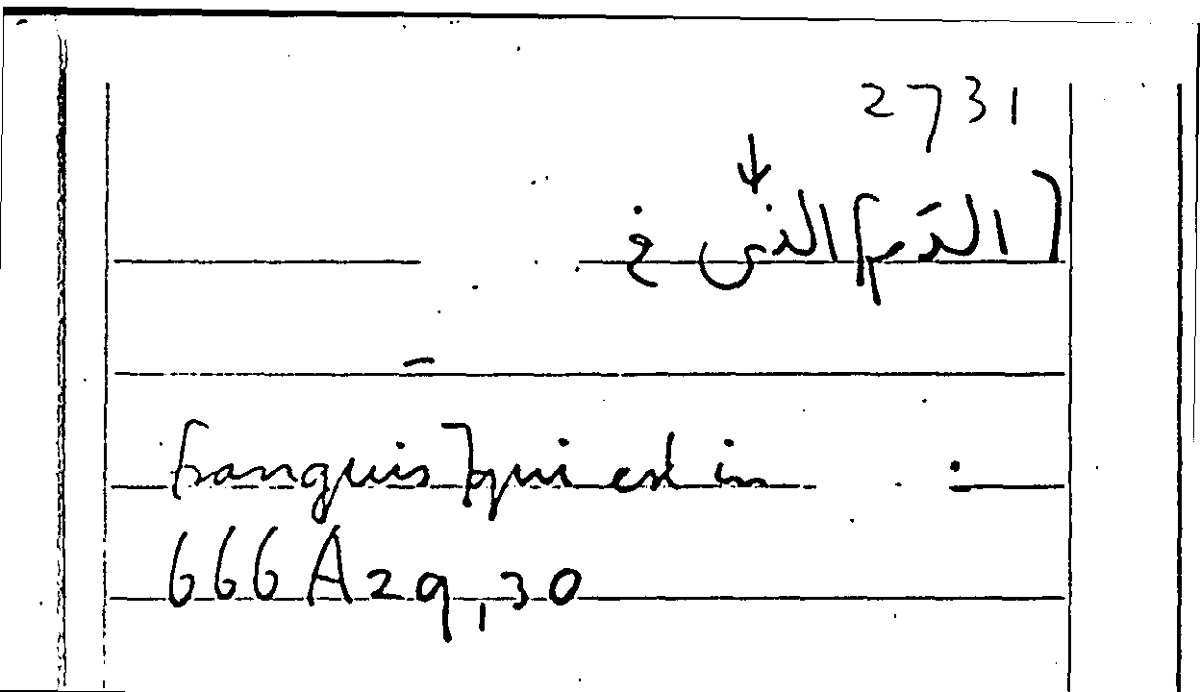 2731
[الدّم] الذى فى
[sanguis] qui est in
666A29,30